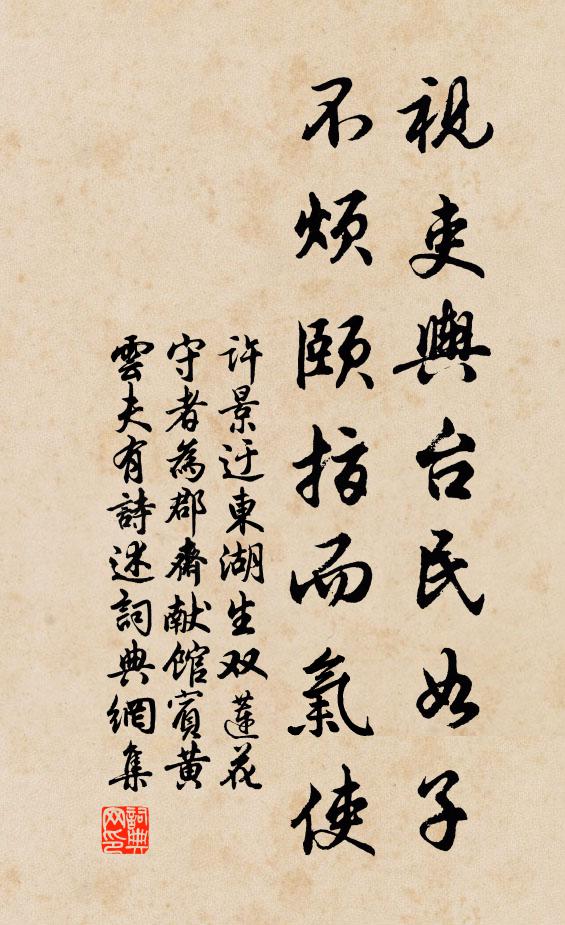 視吏輿台民如子
不煩頤指而氣使
許景迂東湖生双蓮花
守者為郡齋献館賓黄
雲夫有詩述詞典網集
詞典
网印